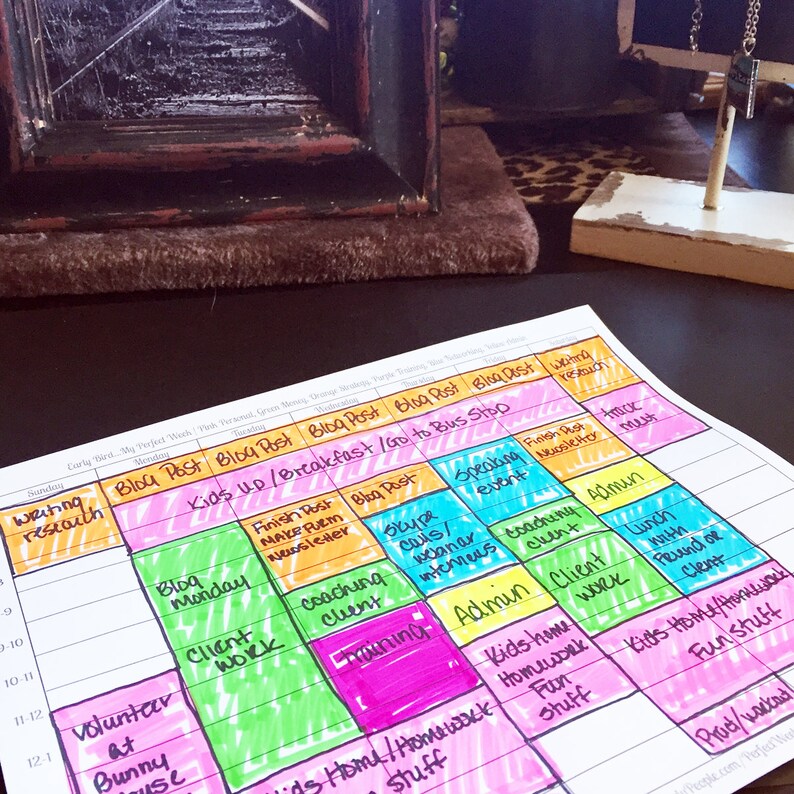 Early Bird...My Perfect Week / Pink Personal, Green Money, Orange Strategy, Purple Training, Blue Networking, Yellow Admin
Sunday
Monday
Tuesday
Wednesday
Thursday
Friday
Saturday
Writing
research
Blog Post
Blog Post
Blog Post
Blog Post
Blog Post
Writing
research
Kids Up/Breakfast/Go to Bus Stop
track
meet
Blog
Monday
Client
Work
Finish Post
Make Perm
Newsletter
Blog Post
Speaking
event
Finish Post
Newsletter
coaching
client
Skype
calls/
webinar
interviews
coaching
client
Admin
training
Admin
Client
work
Lunch
with
Friend or
Client
Volunteer
at
Bunny
House
Kids Home/Homework
Fun Stuff
Kids home
Homework
Fun
Stuff
Kids Home/Homework
Fun Stuff
8
-9
9-10
10-11
11-12
12-1
People.com/Perfect Week